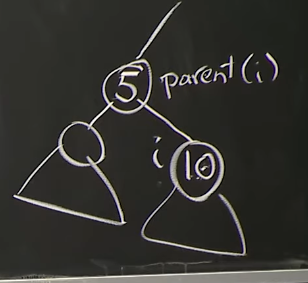 5 parent(i)
i 10